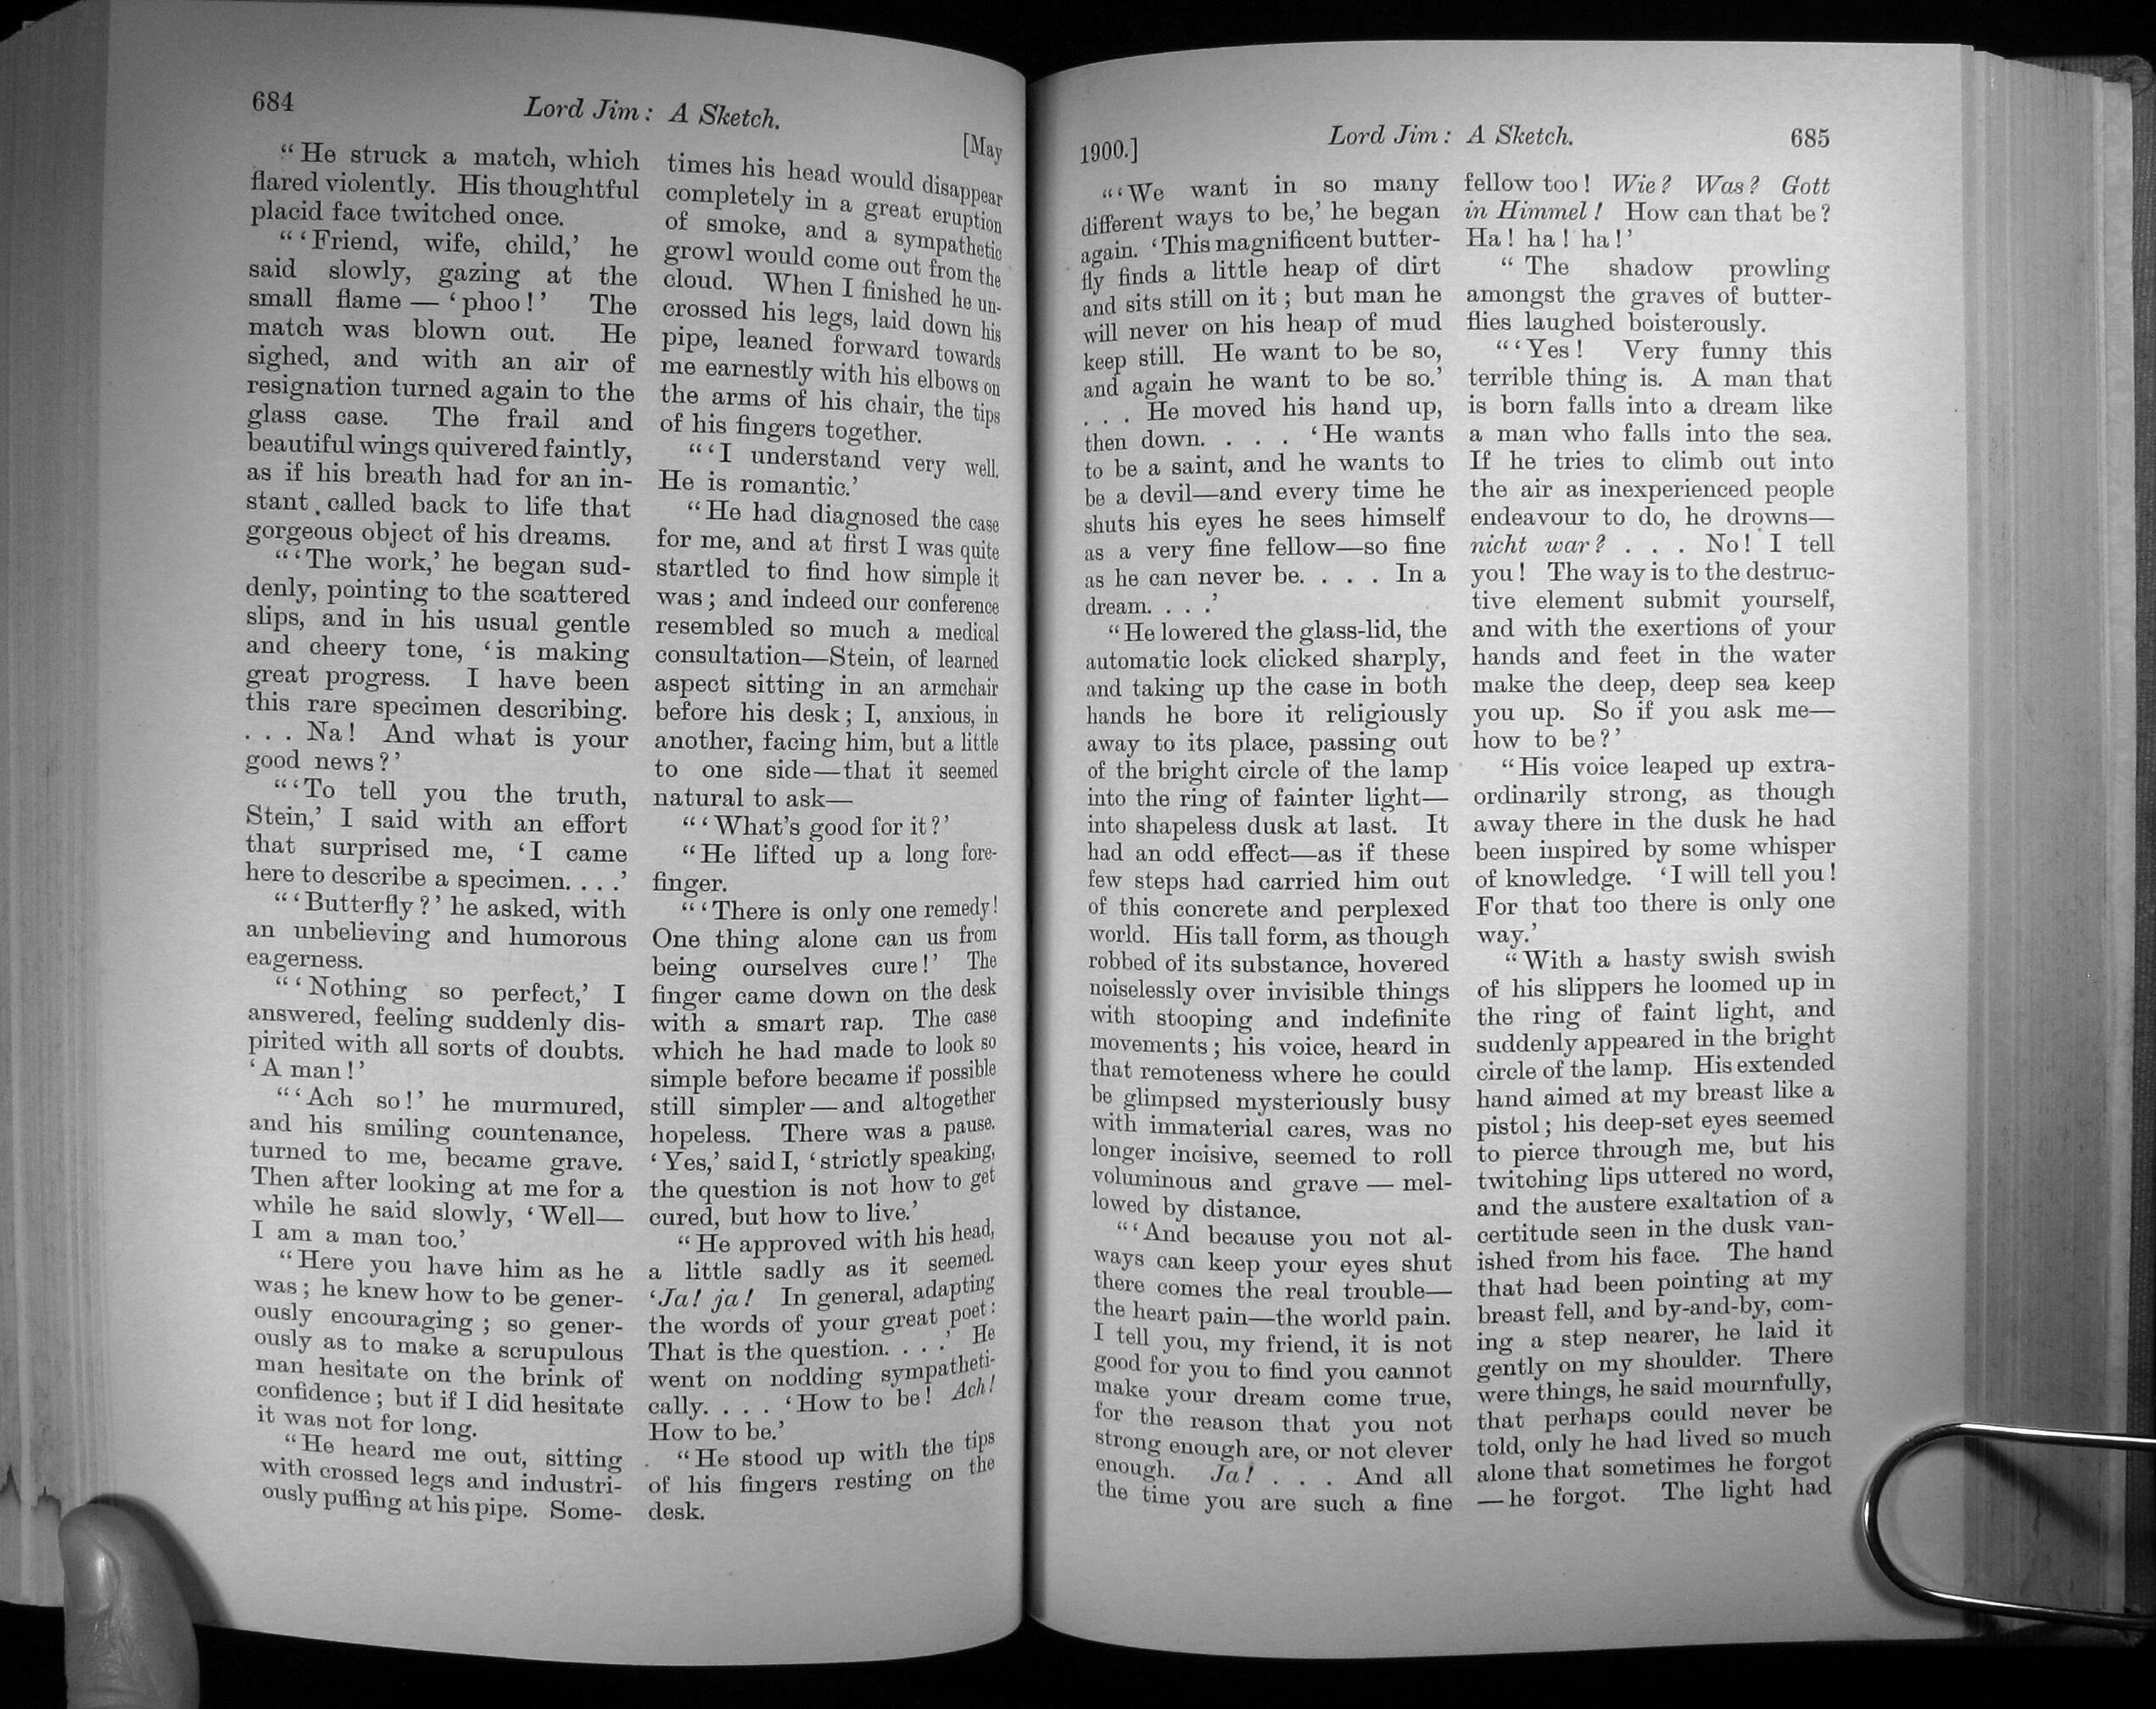 684
Lord Jim: A Sketch.
[May
“He struck a match, which
flared violently. His thoughtful
placid face twitched once.
“‘Friend, wife, child,’ he
said slowly, gazing at the
small flame — ‘phoo!’ The
match was blown out. He
sighed, and with an air of
resignation turned again to the
glass case. The frail and
beautiful wings quivered faintly,
as if his breath had for an in-
stant called back to life that
gorgeous object of his dreams.
“‘The work,’ he began sud-
denly, pointing to the scattered
slips, and in his usual gentle
and cheery tone, ‘is making
great progress. I have been
this rare specimen describing.
. . . Na! And what is your
good news?’
“‘To tell you the truth,
Stein,’ I said with an effort
that surprised me, ‘I came
here to describe a specimen. . . .’
“‘Butterfly?’ he asked, with
an unbelieving and humorous
eagerness.
“‘Nothing so perfect,’ I
answered, feeling suddenly dis-
pirited with all sorts of doubts.
‘A man!’
“‘Ach so!’ he murmured,
and his smiling countenance,
turned to me, became grave.
Then after looking at me for a
while he said slowly, ‘Well—
I am a man too.’
“Here you have him as he
was; he knew how to be gener-
ously encouraging; so gener-
ously as to make a scrupulous
man hesitate on the brink of
confidence; but if I did hesitate
it was not for long.
“He heard me out, sitting
with crossed legs and industri-
ously puffing at his pipe. Some-
times his head would disappear
completely in a great eruption
of smoke, and a sympathetic
growl would come out from the
cloud. When I finished he un-
crossed his legs, laid down his
pipe, leaned forward towards
me earnestly with his elbows on
the arms of his chair, the tips
of his fingers together.
“‘I understand very well.
He is romantic.’
“He had diagnosed the case
for me, and at first I was quite
startled to find how simple it
was; and indeed our conference
resembled so much a medical
consultation—Stein, of learned
aspect sitting in an armchair
before his desk; I, anxious, in
another, facing him, but a little
to one side—that it seemed
natural to ask—
“‘What's good for it?’
“He lifted up a long fore-
finger.
“‘There is only one remedy!
One thing alone can us from
being ourselves cure!’ The
finger came down on the desk
with a smart rap. The case
which he had made to look so
simple before became if possible
still simpler—and altogether
hopeless. There was a pause.
‘Yes,’ said I, ‘strictly speaking,
the question is not how to get
cured, but how to live.’
“He approved with his head,
a little sadly as it seemed.
‘Ja! ja! In general, adapting
the words of your great poet:
That is the question. . . .’ He
went on nodding sympatheti-
cally. . . . ‘How to be! Ach!
How to be.’
“He stood up with the tips
of his fingers resting on the
desk.
1900.]
Lord Jim: A Sketch.
685
“‘We want in so many
different ways to be,’ he began
again. ‘This magnificent butter-
fly finds a little heap of dirt
and sits still on it; but man he
will never on his heap of mud
keep still. He want to be so,
and again he want to be so.’
. . . He moved his hand up,
then down. . . . ‘He wants
to be a saint, and he wants to
be a devil—and every time he
shuts his eyes he sees himself
as a very fine fellow—so fine
as he can never be. . . . In a
dream. . . .’
“He lowered the glass-lid, the
automatic lock clicked sharply,
and taking up the case in both
hands he bore it religiously
away to its place, passing out
of the bright circle of the lamp
into the ring of fainter light—
into shapeless dusk at last. It
had an odd effect—as if these
few steps had carried him out
of this concrete and perplexed
world. His tall form, as though
robbed of its substance, hovered
noiselessly over invisible things
with stooping and indefinite
movements; his voice, heard in
that remoteness where he could
be glimpsed mysteriously busy
with immaterial cares, was no
longer incisive, seemed to roll
voluminous and grave — mel-
lowed by distance.
“‘And because you not al-
ways can keep your eyes shut
there comes the real trouble—
the heart pain—the world pain.
I tell you, my friend, it is not
good for you to find you cannot
make your dream come true,
for the reason that you not
strong enough are, or not clever
enough. Ja! . . . And all
the time you are such a fine
fellow too! Wie? Was? Gott
in Himmel! How can that be?
Ha! ha! ha!’
“The shadow prowling
amongst the graves of butter-
flies laughed boisterously.
“‘Yes! Very funny this
terrible thing is. A man that
is born falls into a dream like
a man who falls into the sea.
If he tries to climb out into
the air as inexperienced people
endeavour to do, he drowns—
nicht war? . . . No! I tell
you! The way is to the destruc-
tive element submit yourself,
and with the exertions of your
hands and feet in the water
make the deep, deep sea keep
you up. So if you ask me—
how to be?’
“His voice leaped up extra-
ordinarily strong, as though
away there in the dusk he had
been inspired by some whisper
of knowledge. ‘I will tell you!
For that too there is only one
way.’
“With a hasty swish swish
of his slippers he loomed up in
the ring of faint light, and
suddenly appeared in the bright
circle of the lamp. His extended
hand aimed at my breast like a
pistol; his deep-set eyes seemed
to pierce through me, but his
twitching lips uttered no word,
and the austere exaltation of a
certitude seen in the dusk van-
ished from his face. The hand
that had been pointing at my
breast fell, and by-and-by, com-
ing a step nearer, he laid it
gently on my shoulder. There
were things, he said mournfully,
that perhaps could never be
told, only he had lived so much
alone that sometimes he forgot
—he forgot. The light had